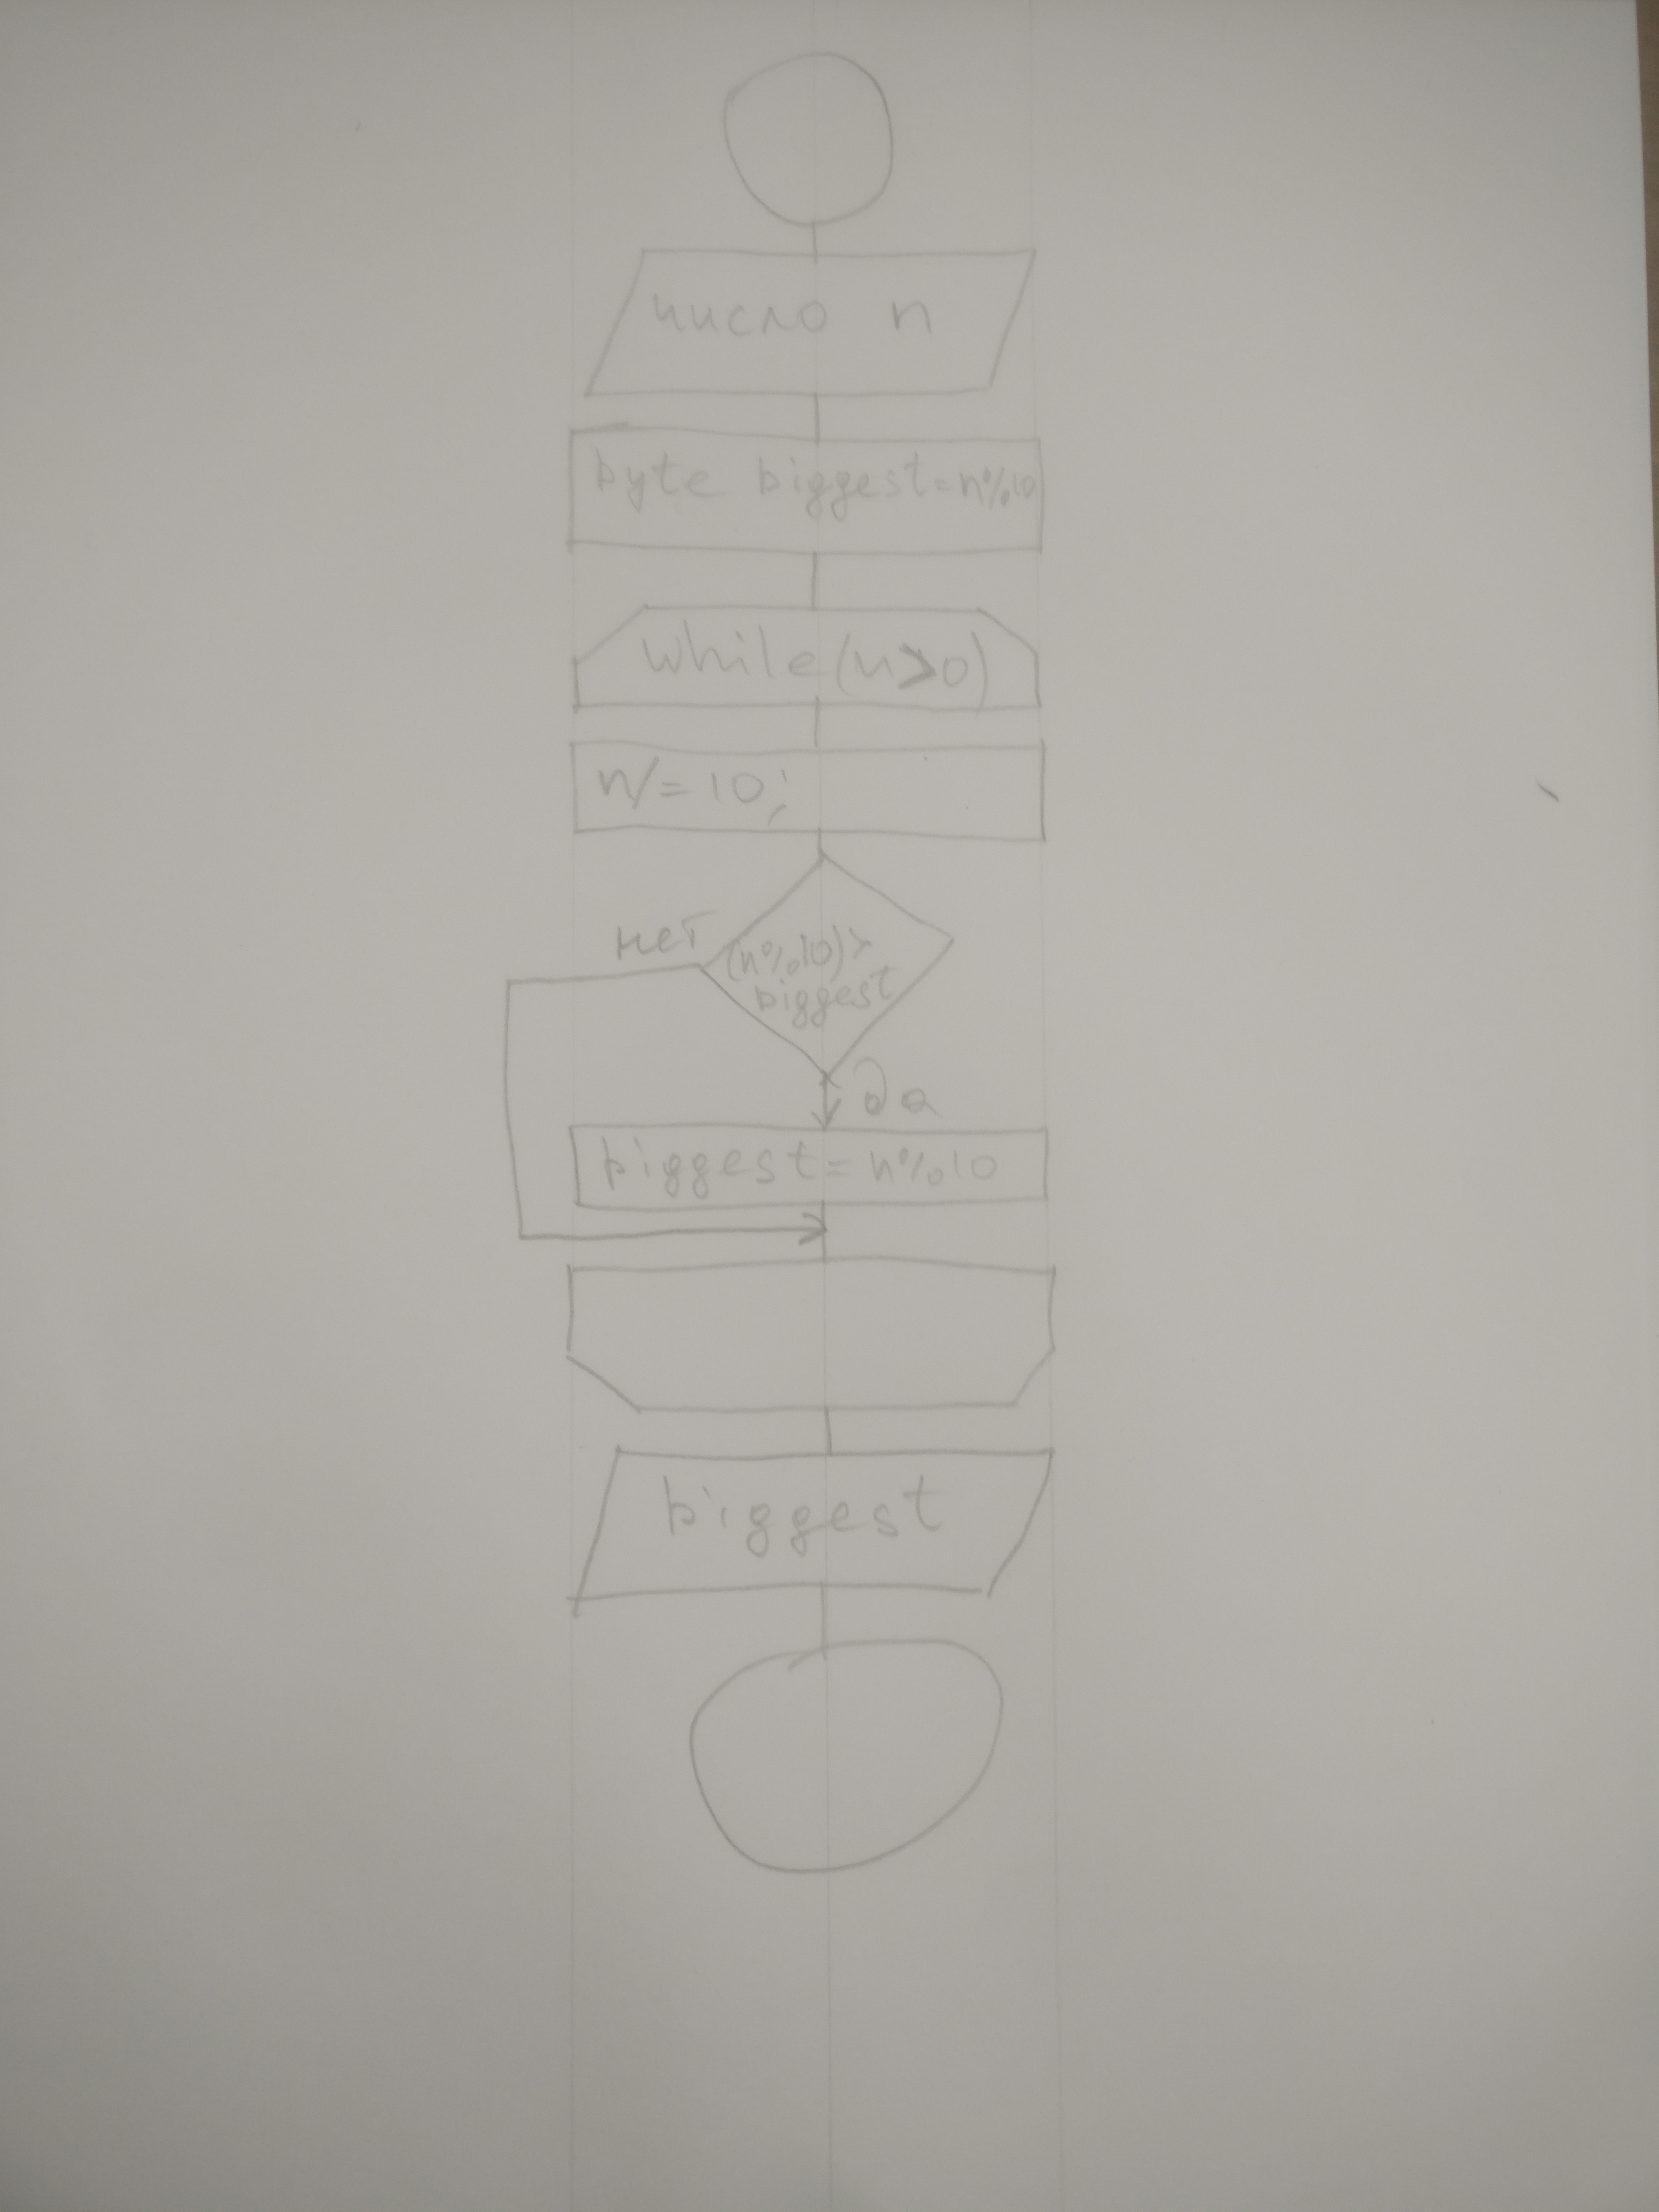 число n
byte biggest=n%10
while(n>0)
n/=10;
нет
(n%10)>
biggest
да
biggest=n%10
biggest